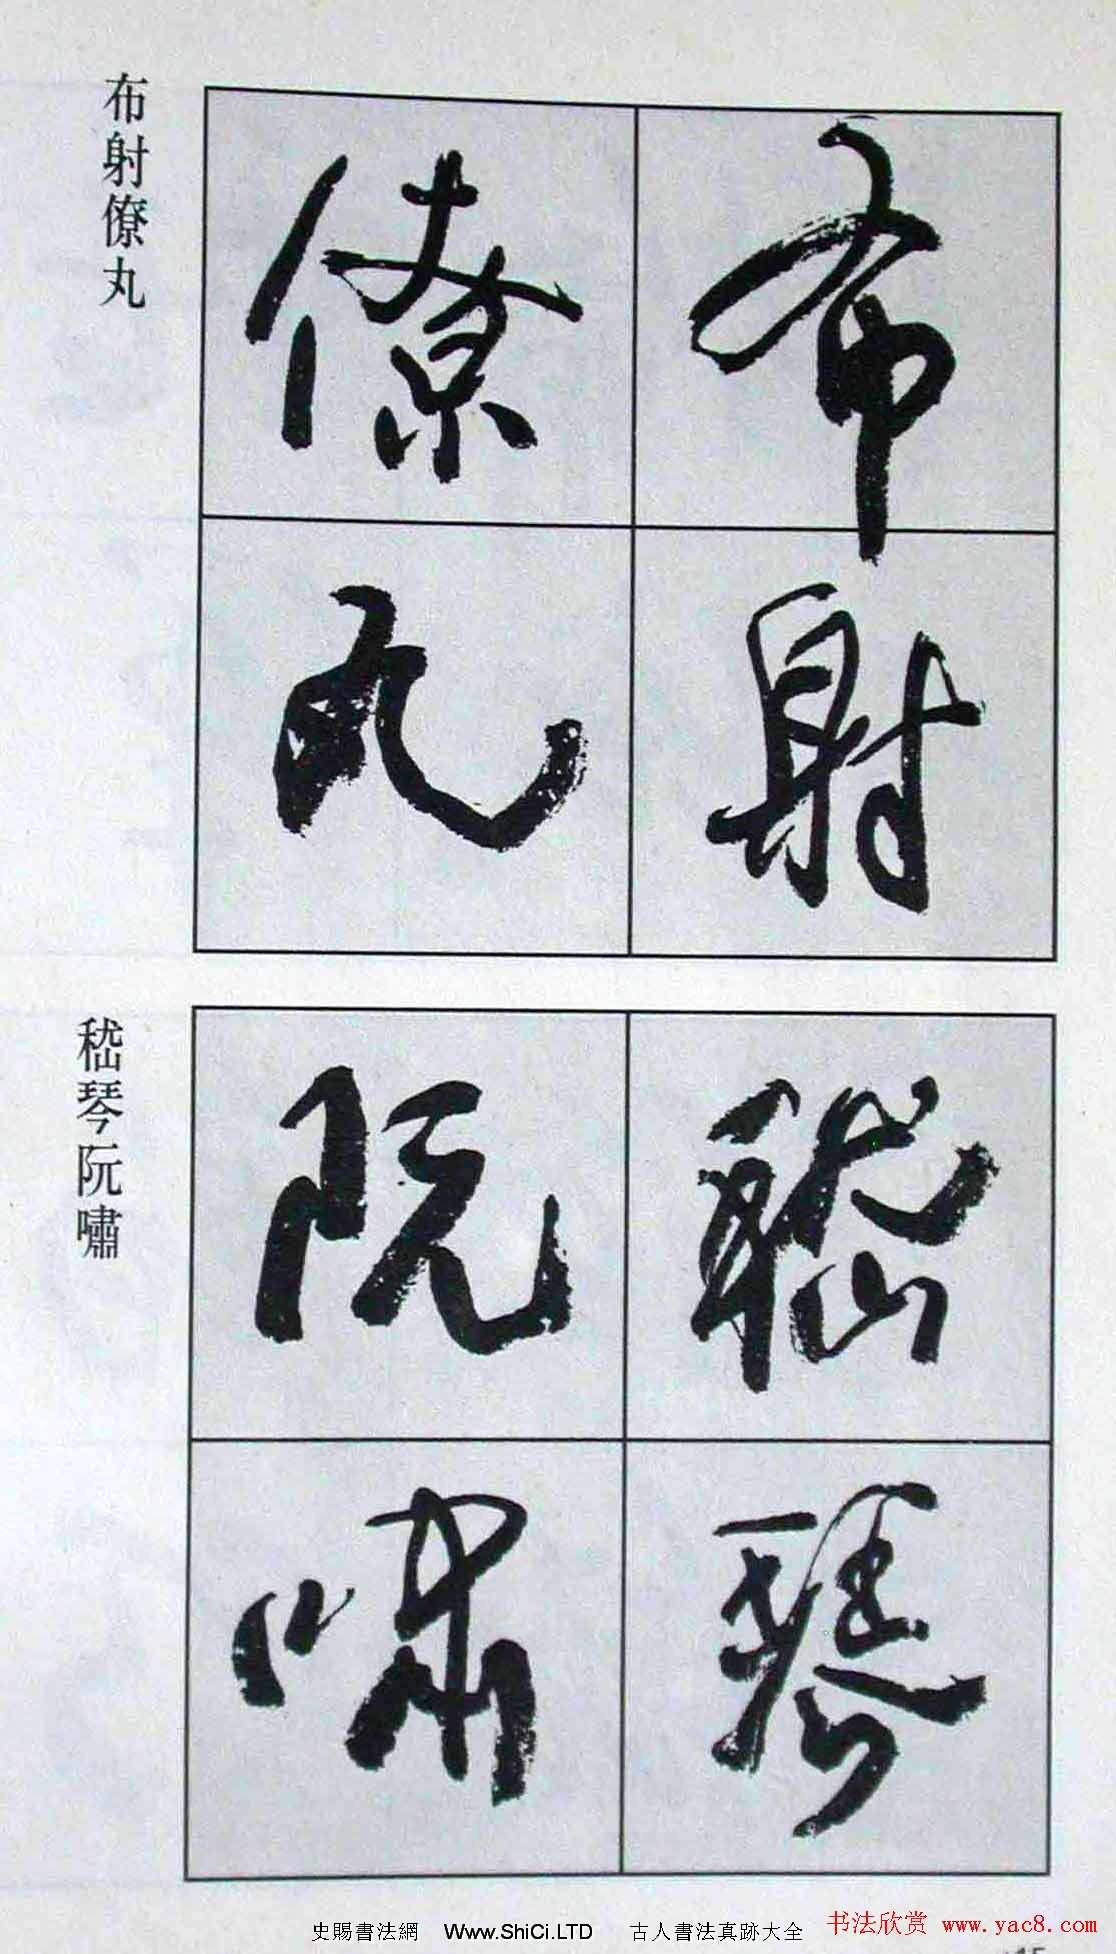 布射僚丸
布射
僚丸
嵇琴阮嘯
嵇琴
阮嘯
史賜書法網 Www.ShiCi.LTD 古人書法真跡大全
书法欣赏 www.yac8.com